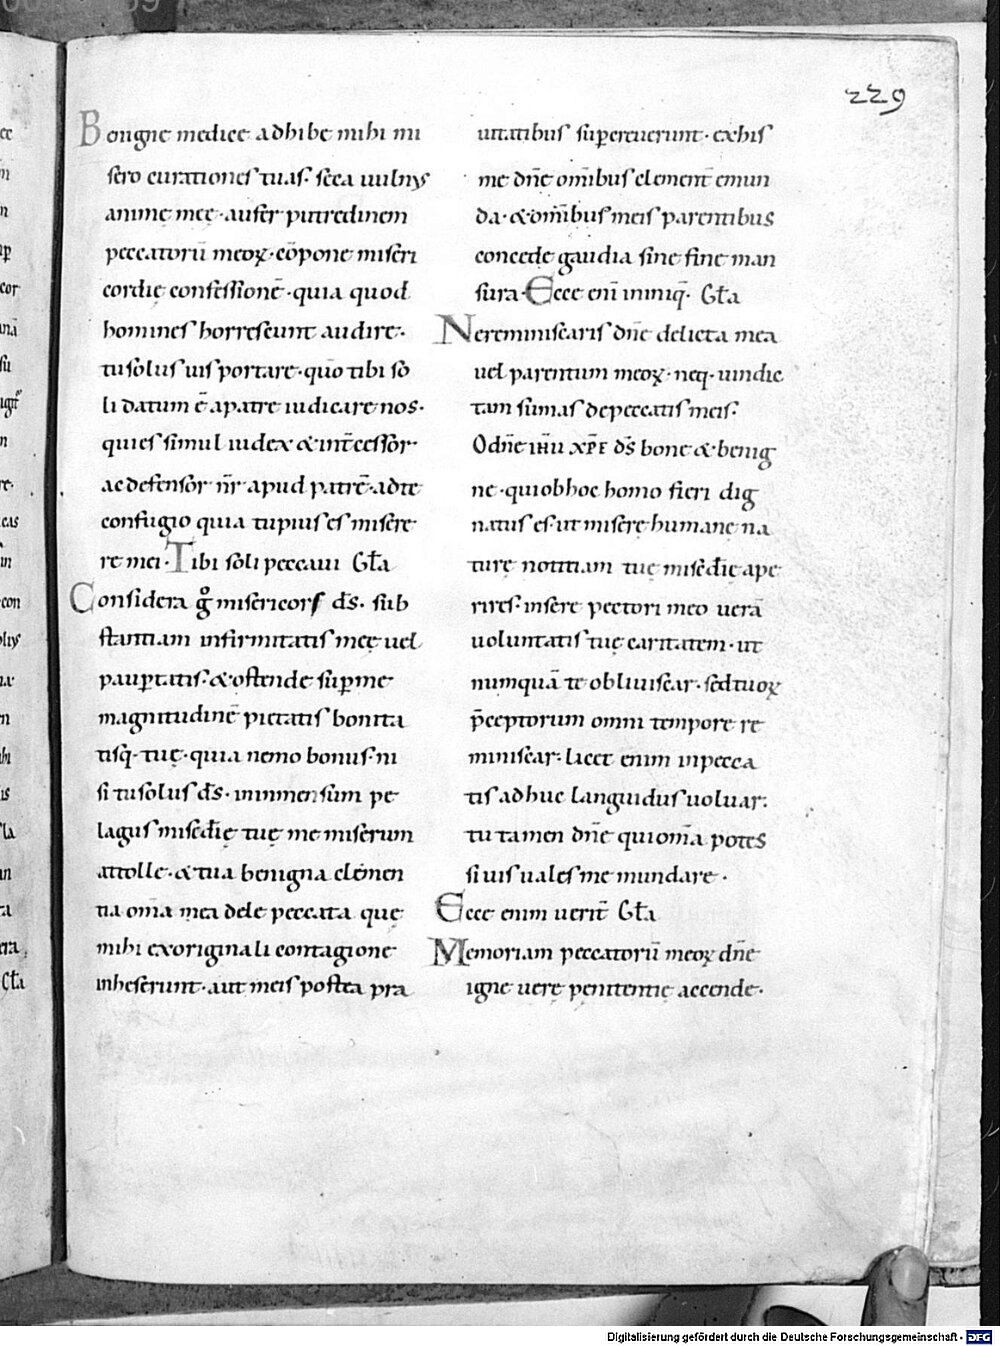 229
Bonigne medice adhibe mihi mi
sero curationes tuas. seca uulnus
animę meę. aufer putredinem
peccatorū meoꝝ. cōpone miseri
cordię confessionē. quia quod
homines horrescunt audire.
tu solus uis portare. quō tibi so
li datum ē a patre iudicare nos.
qui es simul iudex & int̄cessor
ac defensor n̄r apud patrē. ad te
confugio quia tu pius es misere
re mei. Tibi soli peccaui Gl̄a
Considera g̊ misericors d̄s. sub
stantiam infirmitatis meę uel
pauꝑtatis. & ostende suꝑ me
magnitudinē pietatis bonita
tisq. tuę. quia nemo bonus ni
si tu solus d̄s. in inmensum pe
lagus miscd̄ię tuę me miserum
attolle. & tua benigna clemen
tia om̄a mea dele peccata quę
mihi ex originali contagione
inheserunt. aut meis postea pra
uitatibus supercreuerunt. ex his
me dn̄e om̄ibus clement̄ emun
da. & om̄ibus meis parentibus
concede gaudia sine fine man
sura. Ecce eni̅ ininiq. Gl̄a
Ne reminiscaris dn̄e delicta mea
uel parentum meoꝝ. neq. uindic
tam sumas de peccatis meis.
O dn̄e ih̄u xp̄e d̄s bone & benig
ne. qui ob hoc homo fieri dig
natus es ut miserę humanę na
turę notitiam tuę misc̄dię ape
rires. insere pectori meo uerā
uoluntatis tuę caritatem. ut
numquā te obliuiscar. sed tuoꝝ
p̄ceptorum omni tempore re
miniscar. licet enim in pecca
tis adhuc languidus uoluar.
tu tamen dn̄e qui om̄a potes
si uis uales me mundare.
Ecce enim uerit̄ Gl̄a
Memoriam peccatorū meoꝝ dn̄e
igne uerę penitentię accende.
Digitalisierung gefördert durch die Deutsche Forschungsgemeinschaft - DFG